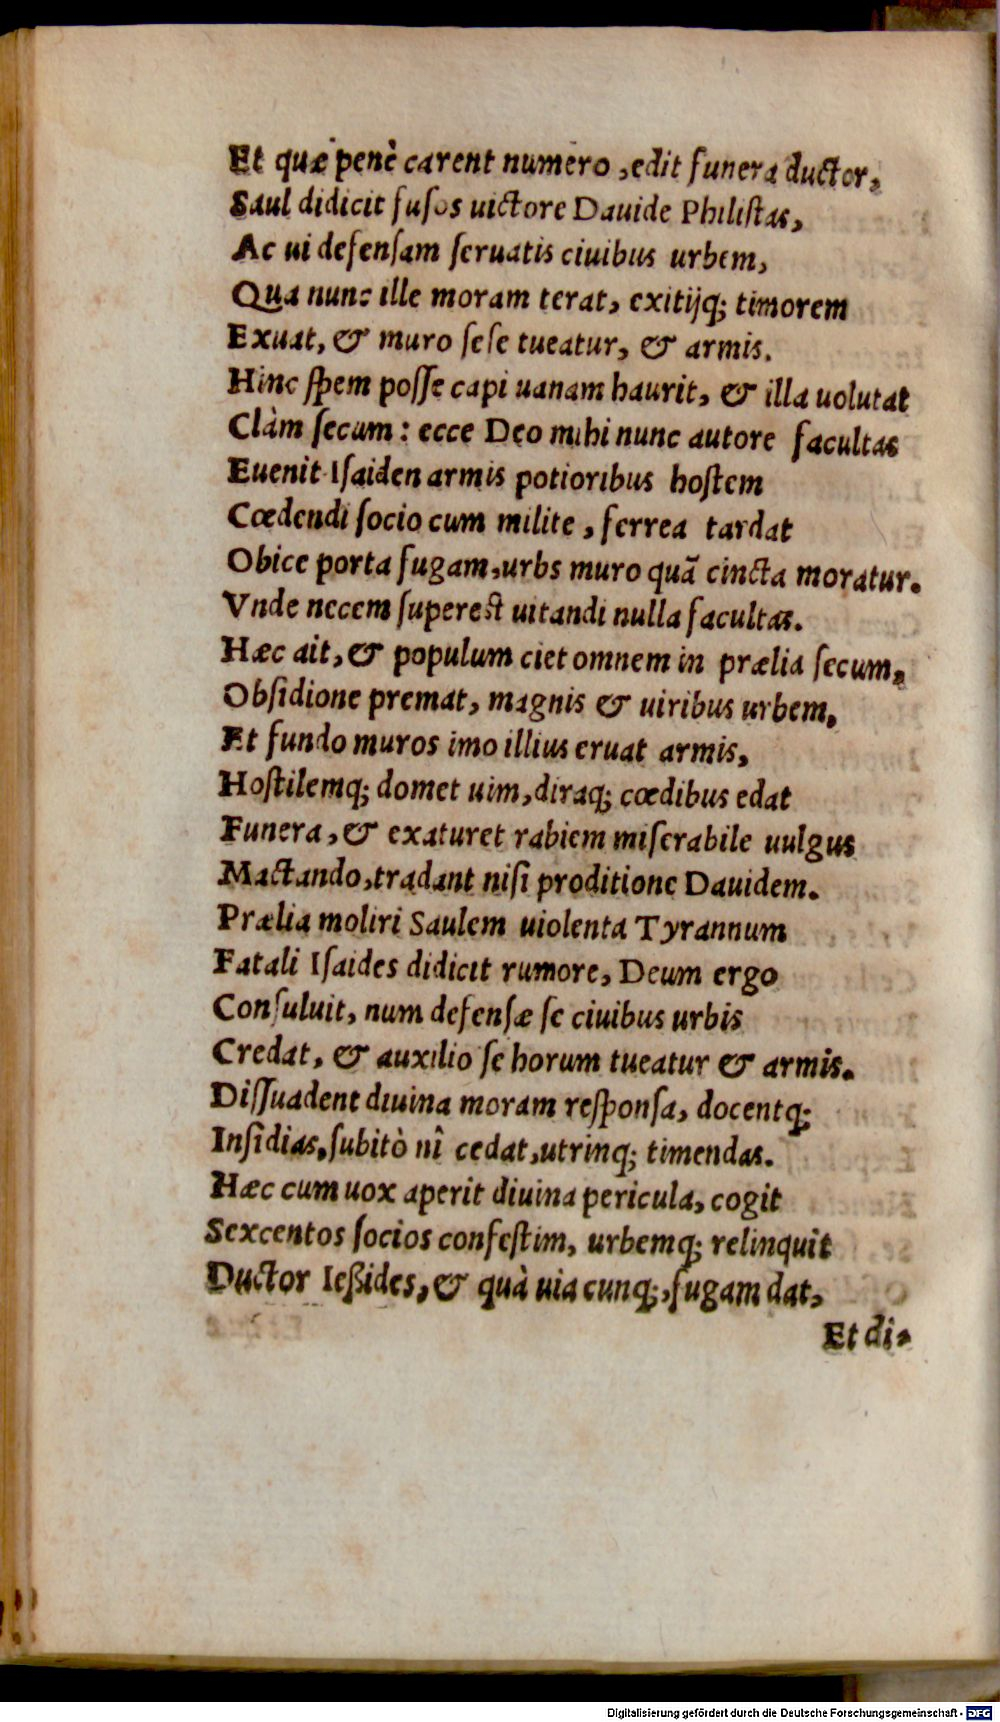 Et quæ penè carent numero, edit funera ductor,
Saul didicit fusos uictore Dauide Philistas,
Ac ui defensam seruatis ciuibus urbem,
Qua nunc ille moram terat, exitijq; timorem
Exuat, & muro sese tueatur, & armis.
Hinc spem posse capi uanam haurit, & illa uolutat
Clàm secum: ecce Deo mihi nunc autore facultas
Euenit Isaiden armis potioribus hostem
Cœdendi socio cum milite, ferrea tardat
Obice porta fugam, urbs muro quā cincta moratur.
Vnde necem superest uitandi nulla facultas.
Hæc ait, & populum ciet omnem in prælia secum,
Obsidione premat, magnis & uiribus urbem,
Et fundo muros imo illius eruat armis,
Hostilemq; domet uim, diraq; cœdibus edat
Funera, & exaturet rabiem miserabile uulgus
Mactando, tradant nisi proditione Dauidem.
Prælia moliri Saulem uiolenta Tyrannum
Fatali Isaides didicit rumore, Deum ergo
Consuluit, num defensæ se ciuibus urbis
Credat, & auxilio se horum tueatur & armis.
Dissuadent diuina moram responsa, docentq;
Insidias, subitò nî cedat, utrinq; timendas.
Hæc cum uox aperit diuina pericula, cogit
Sexcentos socios confestim, urbemq; relinquit
Ductor Ießides, & quà uia cunq;, fugam dat,
Et di-
Digitalisierung gefördert durch die Deutsche Forschungsgemeinschaft - DFG